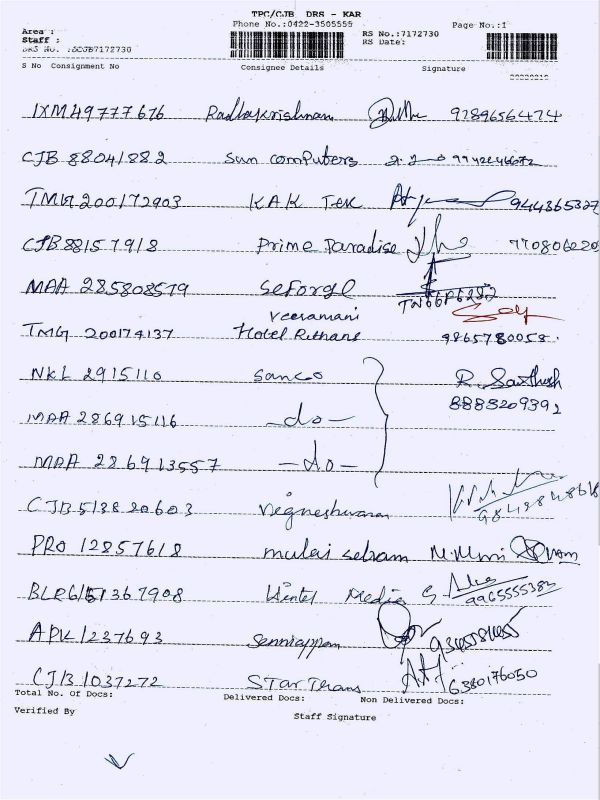 TPC/CJB DRS - KAR
Phone No.:0422-3505555 Page No.:1
Area :
Staff : RS No.:7172730
DRS No. :CJB7172730 RS Date:
S No Consignment No Consignee Details Signature
IXM49777676 Radhakrishnan 9789656474
CJB 88041882 Sun computers
TMG 200172903 KAK Tex 944365327
CJB88157918 Prime Paradise 770806220
MAA 285808579 Seforge TN66P6282
TMG 200174137 Veeramani Hotel 9865780058
NKL 2915110 Sanco R. Santhosh
8883209392
MAA 286915116 -do-
MAA 286913557 -do-
CJB513820603 Vigneshwaran
PRO 12857618 mulai selvam
Media 9965555383
APK1237693 Senniappan
CJB1037272 STar Trans 6380176050
Total No. Of Docs: Delivered Docs: Non Delivered Docs:
Verified By Staff Signature